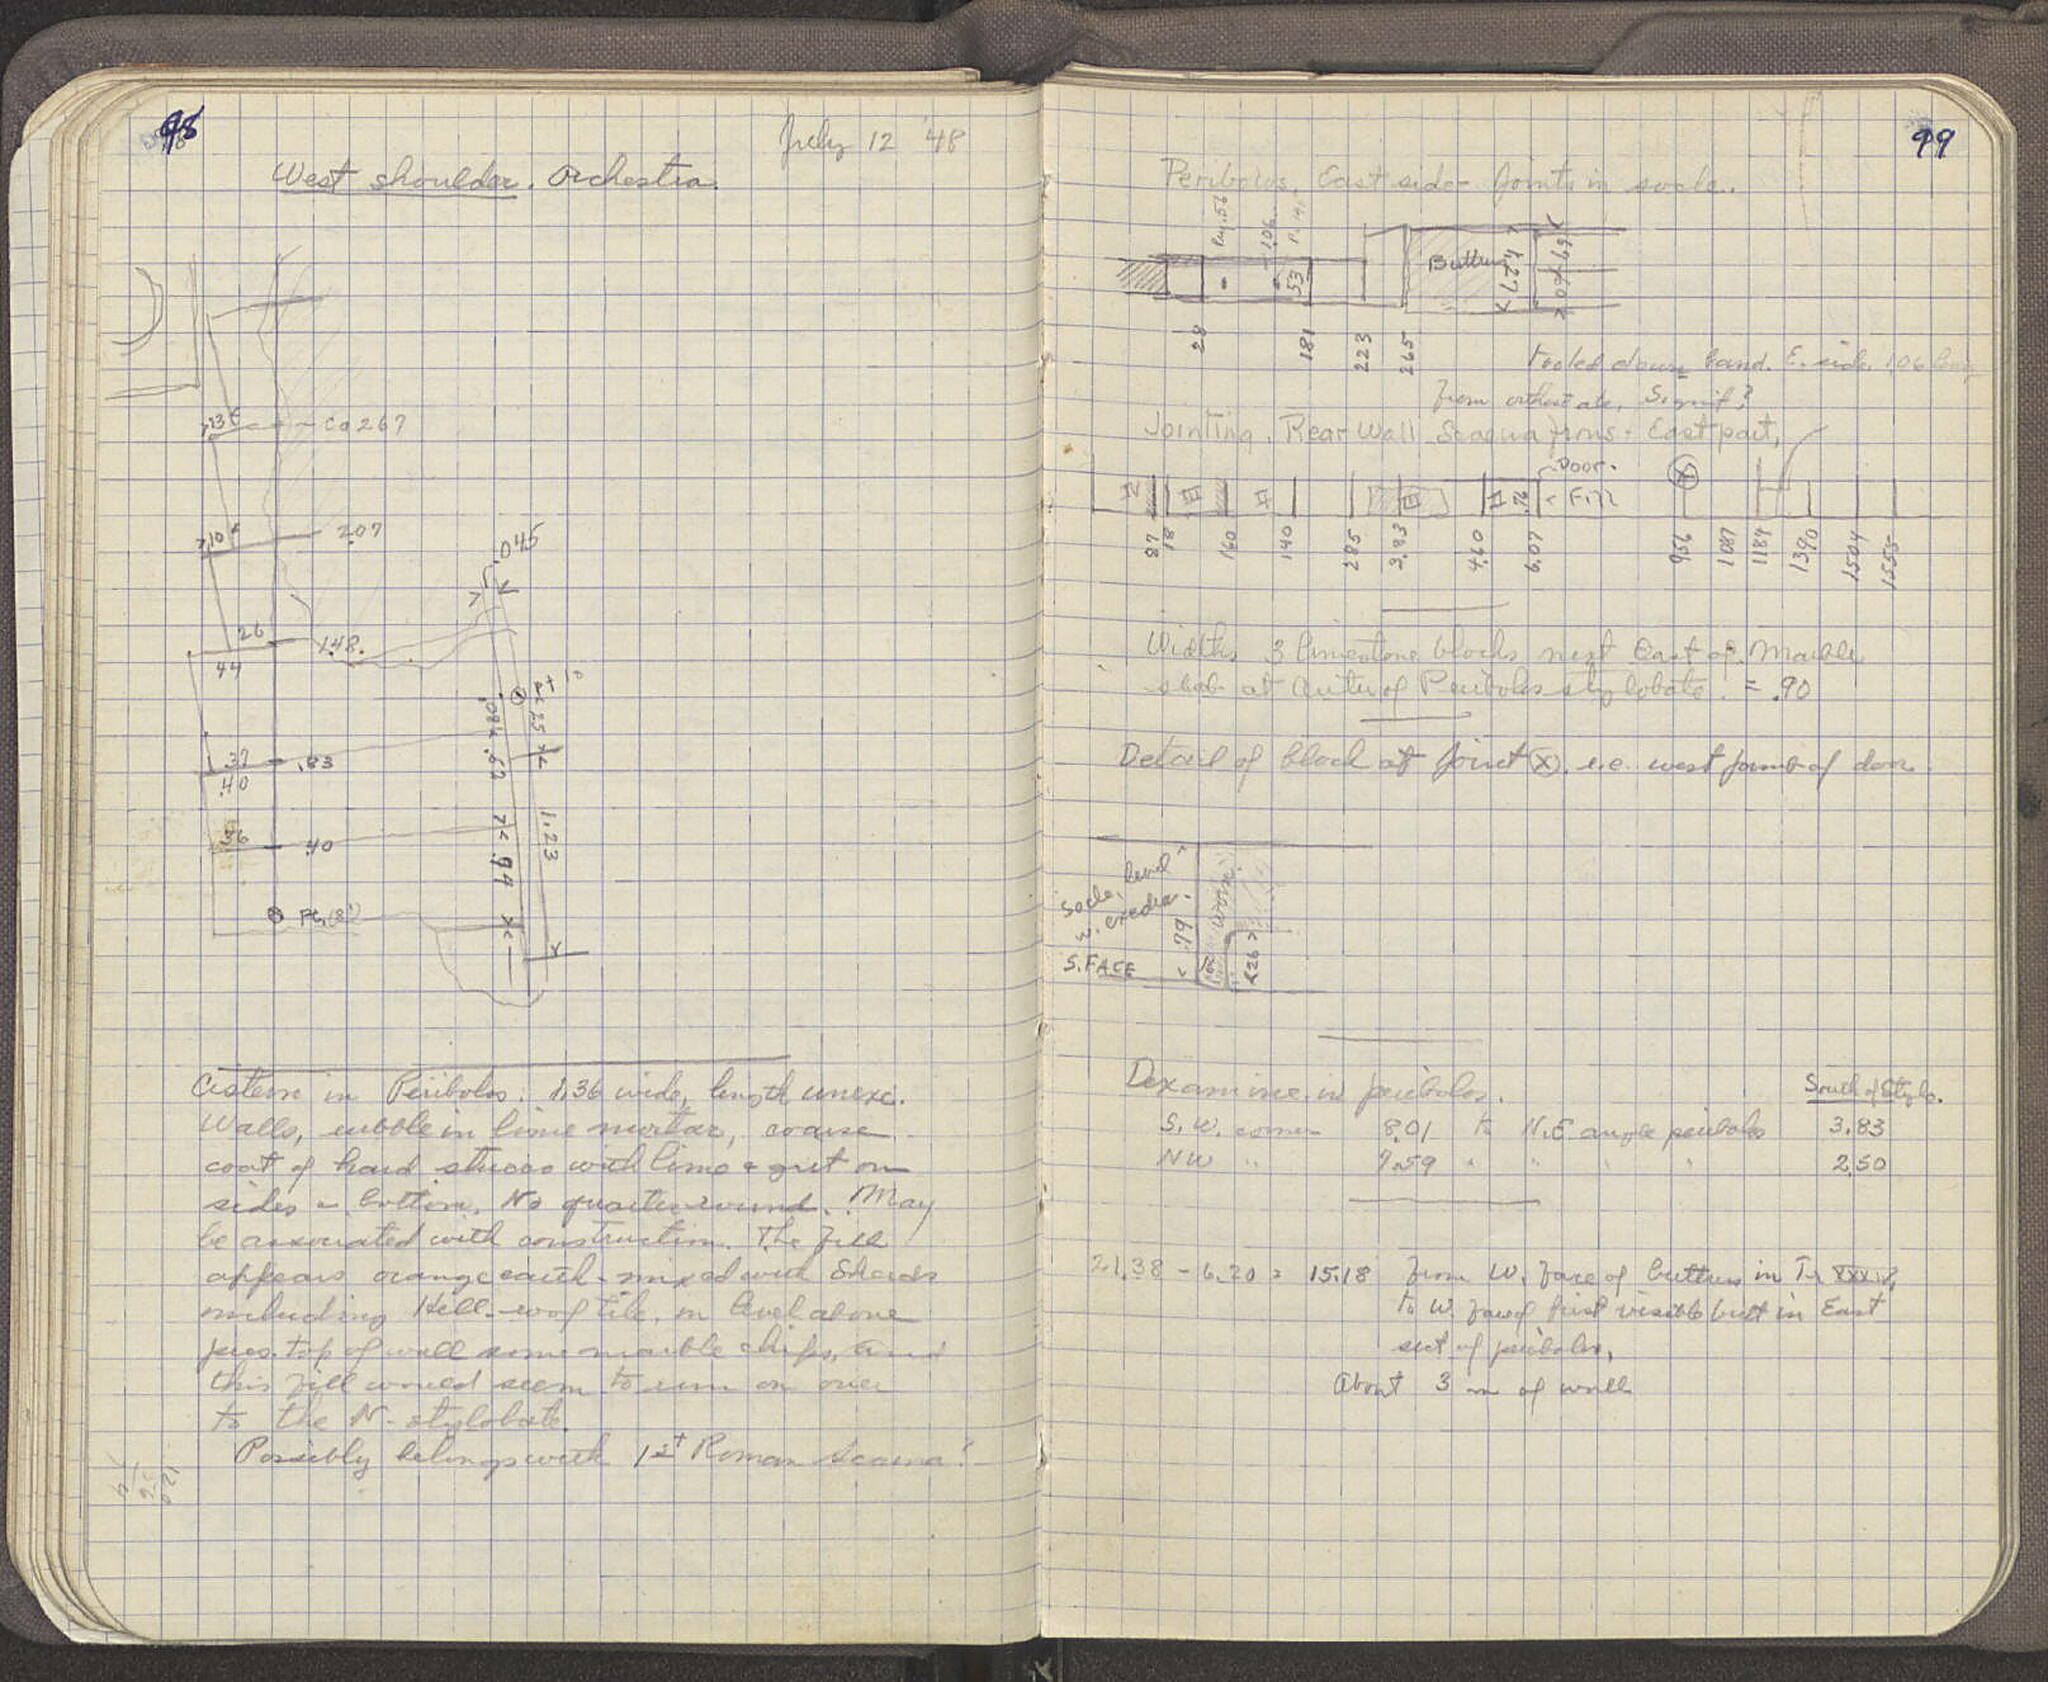 98
July 12 '48
West shoulder. Orchestra.
.045
ca 267
.10
207
26
1.48
44
Pt 10
.62
37
.83
.40
36
.40
.94
1.23
Pt.
Cistern in Peribolos: 1.36 wide, length unexc.
Walls, rubble in lime mortar, coarse
coat of hard stucco with lime & grit on
sides & bottom. No quarter round. May
be associated with construction. The fill
appears orange earth mixed with sherds
including Hell. roof tile, in level above
pres. top of wall some marble chips, and
this fill would seem to run on over
to the N. stylobate.
Possibly belongs with 1st Roman Scaena?
99
Peribolos, East side - Joints in socle.
1.06
53
1.27
.69
28
181
223
265
Tooled down band. E. side 1.06 long
from orthostate. Signif?
Jointing. Rear Wall Scaenae frons - East part.
Door.
X
Fill
.76
87
18
160
140
285
3.83
4.60
6.07
956
1087
1184
1390
1504
1555
Width 3 limestone blocks next East of Marble
slab at center of Peribolos stylobate. = .90
Detail of block at joint X, i.e. west jamb of door
Socle, level
W. exedra.
.79
S. FACE
.26
Dexamine in peribolos.
South of Stylo.
S.W. corner 8.01 to N.E. angle peribolos 3.83
NW " 7.59 " " " " 2.50
21.38 - 6.20 = 15.18 from W. face of buttress in Tr
to W. face of first visible butt in East
sect of peribolos.
About 3 m of wall